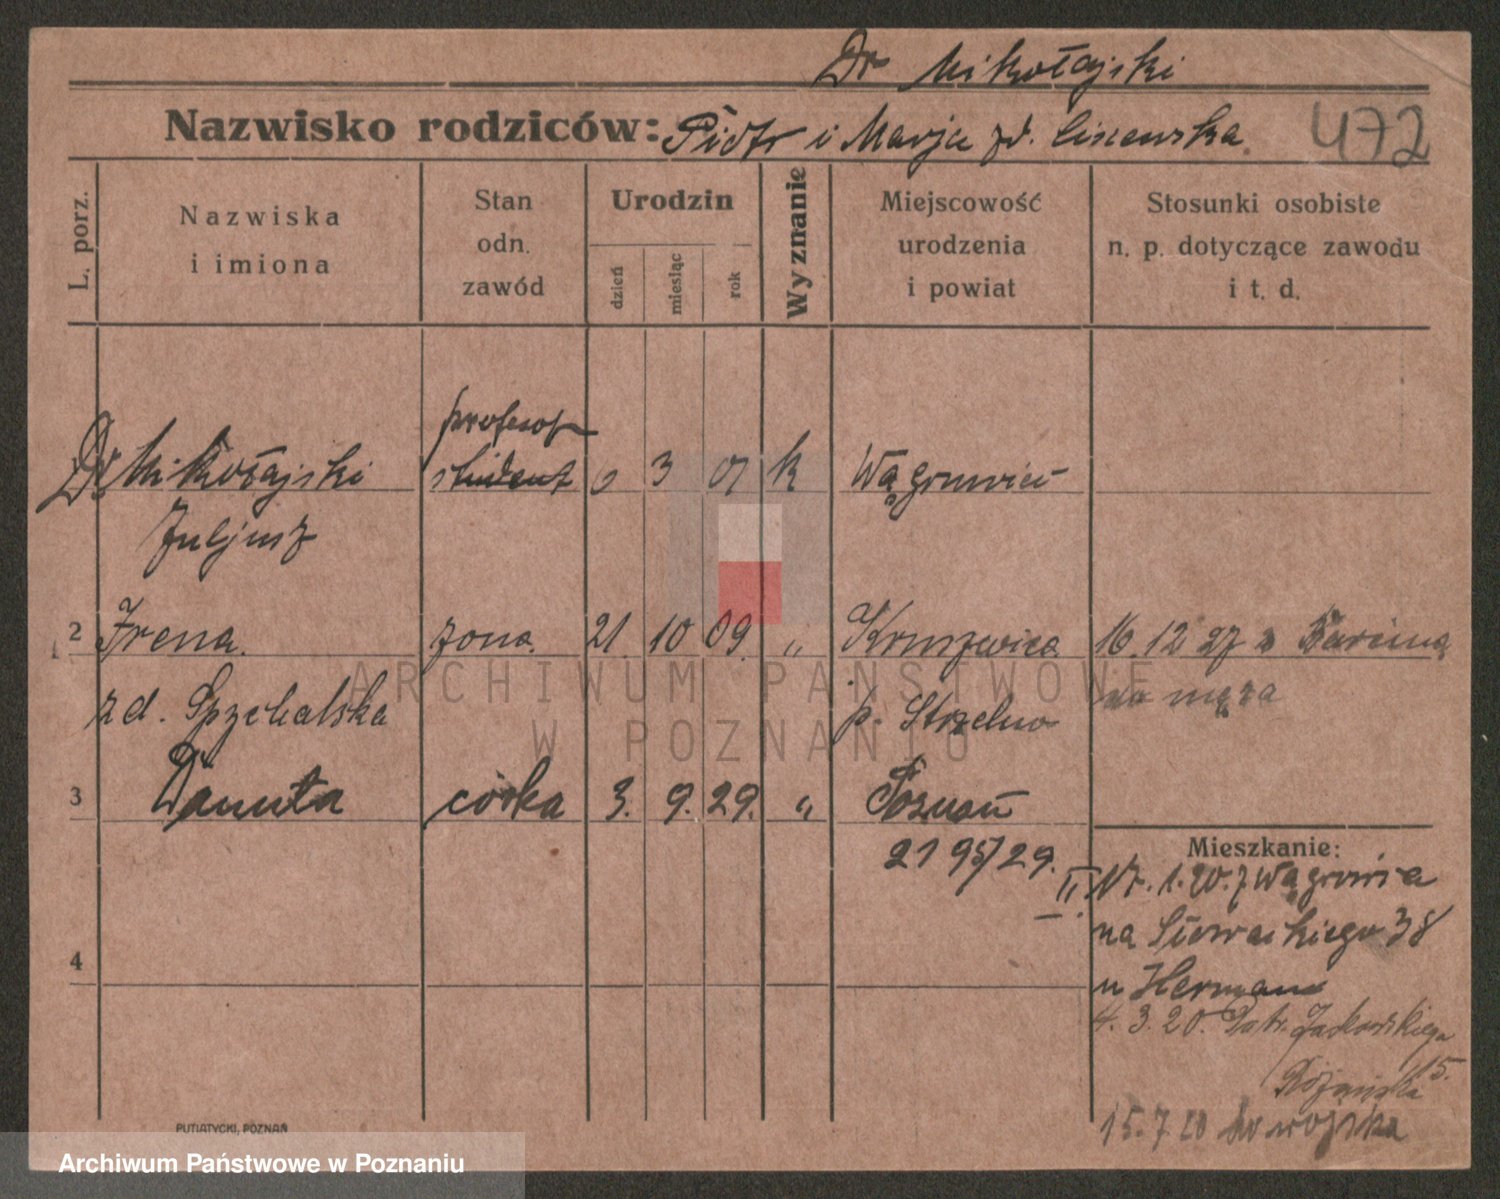 Dr Mikołajski
Nazwisko rodziców: Piotr i Marja zd. Lisiewska.
472
L. porz.
Nazwiska
i imiona
Stan
odn.
zawód
Urodzin
dzień
miesiąc
rok
Wyznanie
Miejscowość
urodzenia
i powiat
Stosunki osobiste
n. p. dotyczące zawodu
i t. d.
profesor
Dr Mikołajski student 3 01 k Wągrowiec
Juljusz
2 Irena. żona. 21. 10 09. " Kruszwica 16.12 27 z
zd. Spychalska p. Strzelno do męża
3 Danuta córka 3. 9. 29. " Poznań
2195/29.
Mieszkanie:
II. 17. 1. 20. z Wągrowca
na Słowackiego 38
u Herman
4
4. 3. 20. Jackowskiego
15.
15. 7 20 do wojska
PUTIATYCKI, POZNAŃ
ARCHIWUM PAŃSTWOWE
W POZNANIU
Archiwum Państwowe w Poznaniu